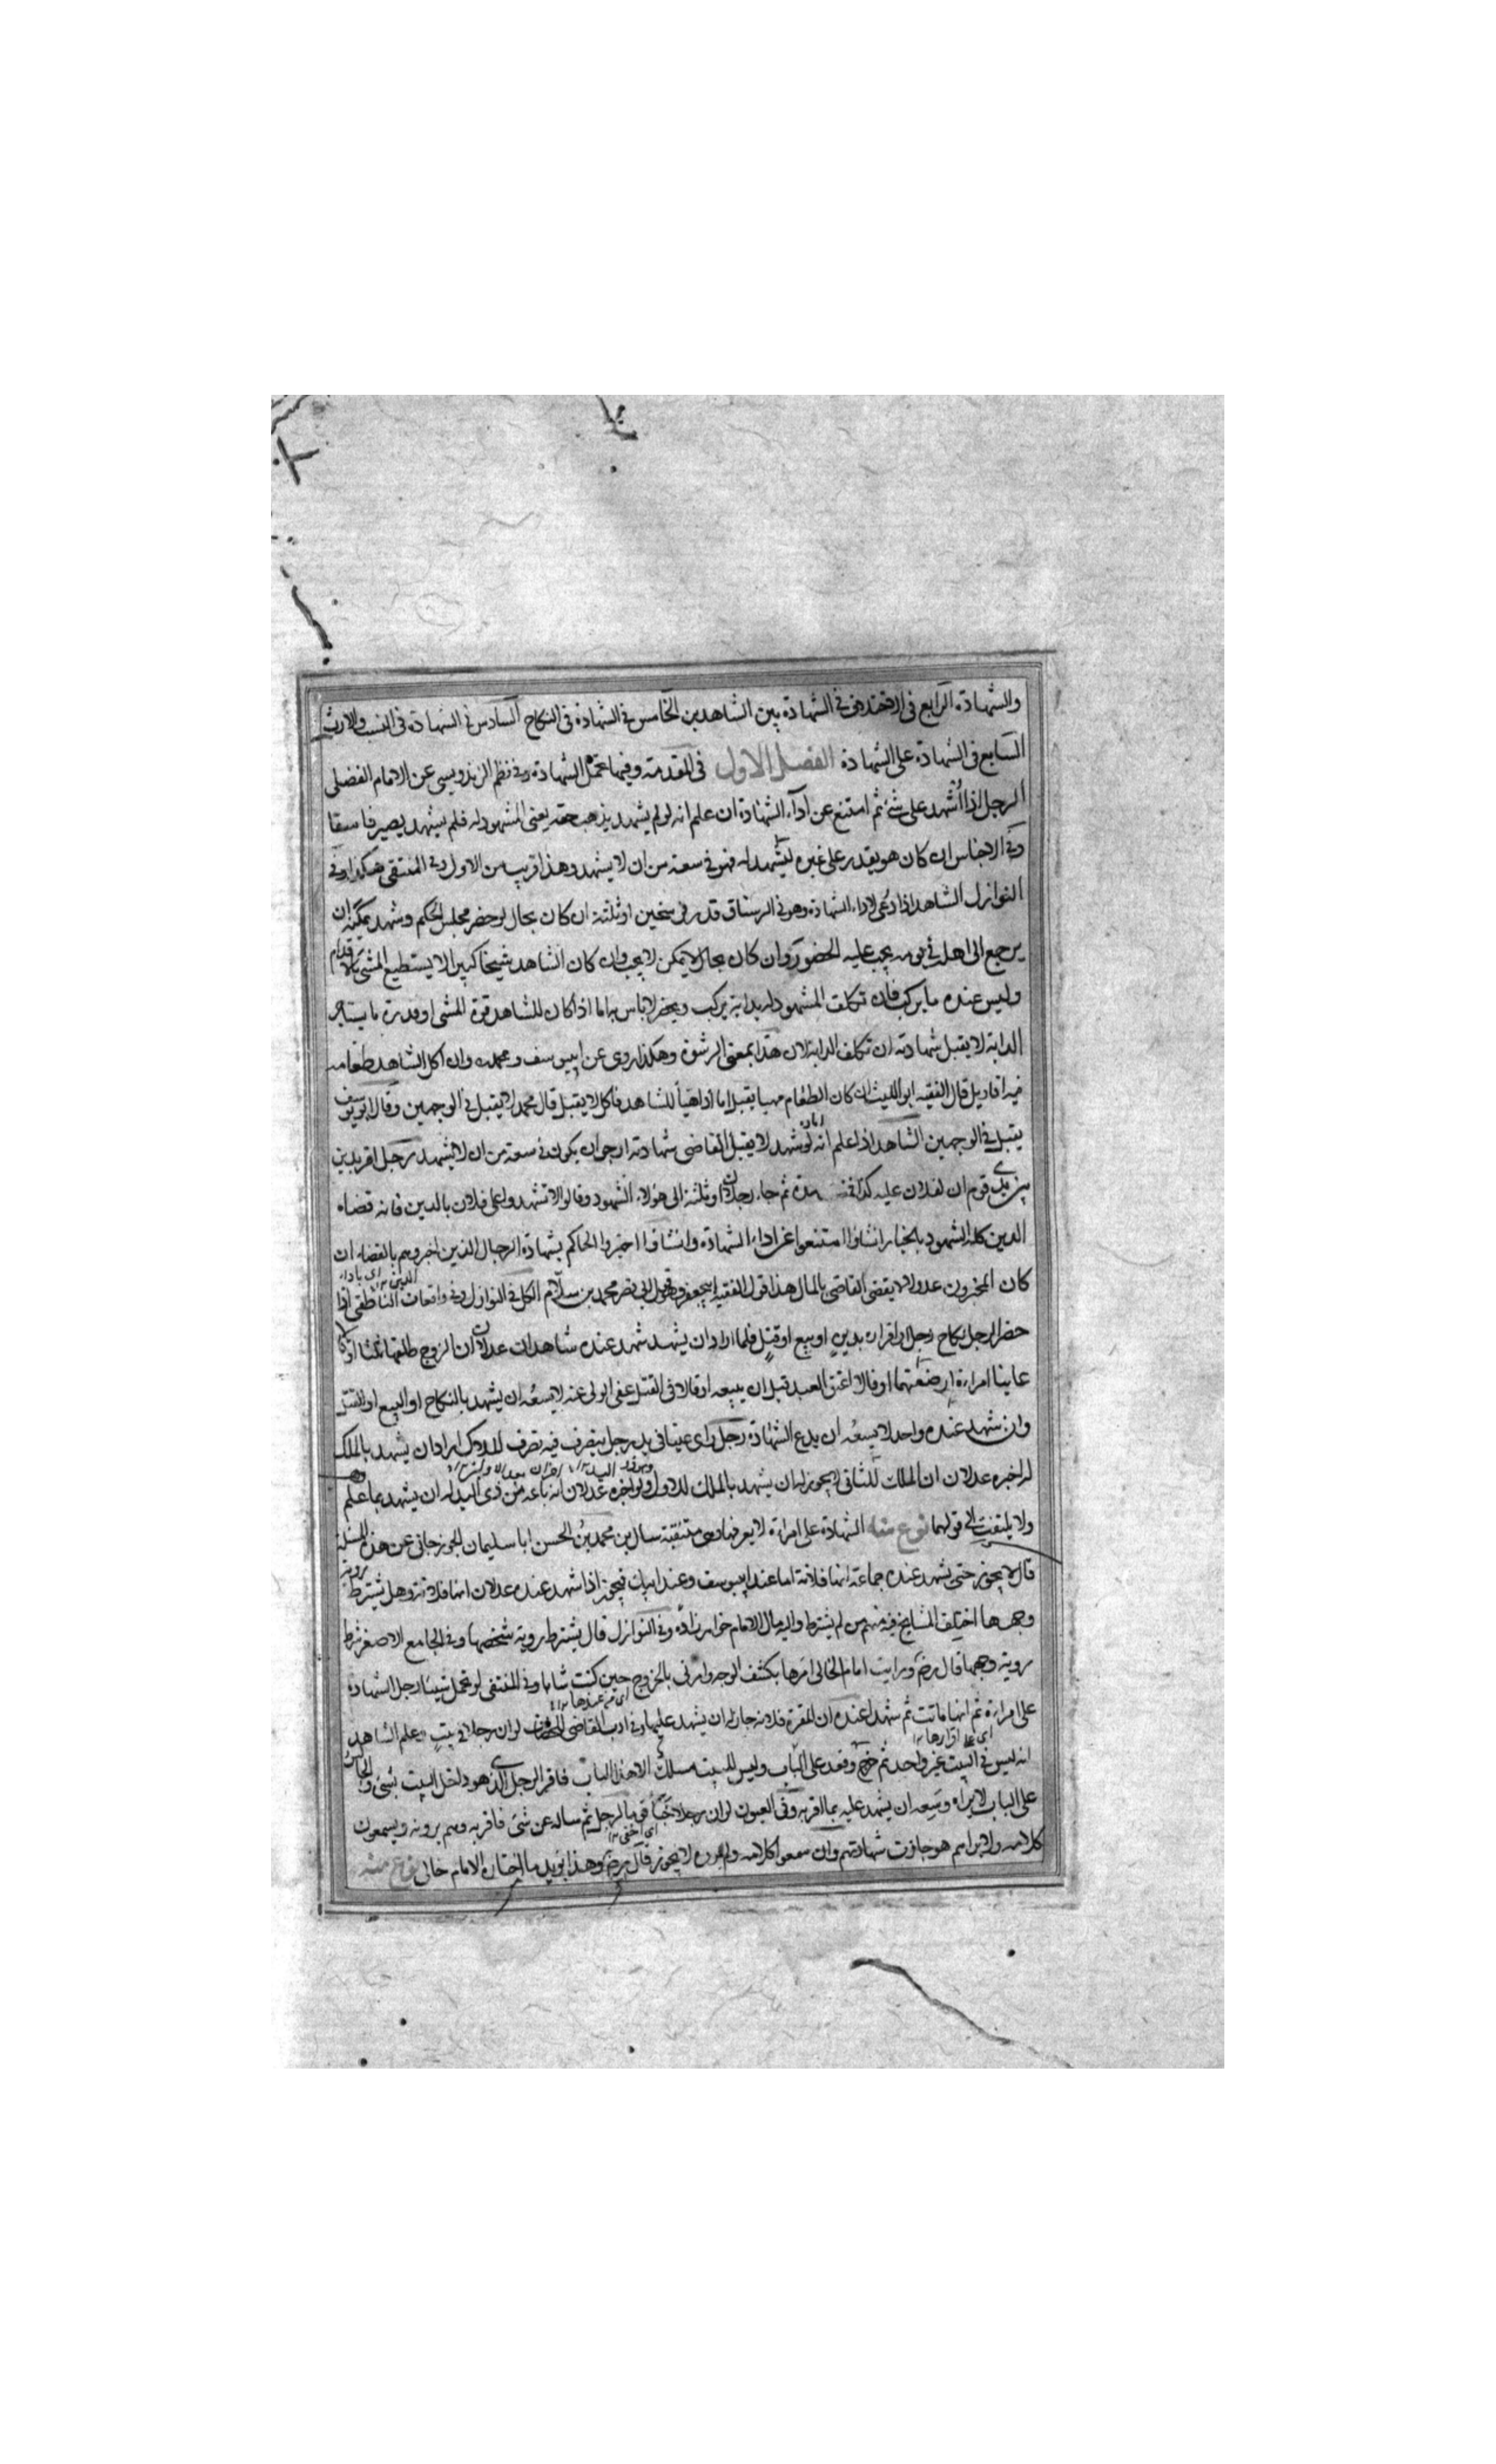 والشهادة الرابع فى الاختلاف فى الشهادة بين الشاهدين الخامس فى الشهادة فى النكاح السادس فى الشهادة فى النسب والارث
السابع فى الشهادة على الشهادة الفصل الاول فى المقدمة وفيها تحمل الشهادة وفى نظم الزندويسى عن الامام الفضلى
الرجل اذا اُشهد على شئ ثم امتنع عن اداء الشهادة ان علم انه لو لم يشهد يذهب حقه يعنى المشهود له فلم يشهد يصير فاسقا
وفى الاجناس ان كان هو يقدر على غيره ليشهد له فهو فى سعة من ان لا يشهد وهذا قريب من الاول وفى المنتقى هكذا وفى
النوازل الشاهد اذا دُعى لاداء الشهادة وهو فى الرستاق قدر فرسخين او ثلثة ان كان بحال لو حضر مجلس الحكم وشهد يمكنه ان
يرجع الى اهله فى يومه يجب عليه الحضور وان كان بحال لا يمكن لا يجب وان كان الشاهد شيخا كبيرا لا يستطيع المشى بالاقدام
وليس عنده ما يركب فان تكلف المشهود له بدابة يركب ويحضر لا باس به اما اذا كان للشاهد قوة المشى او قدرة ما يستاجر
الدابة لا يقبل شهادته ان تكلف الدابة لان هذا بمعنى الرشوة وهكذا روى عن ابى يوسف ومحمد وان اكل الشاهد طعامه
فيه اقاويل قال الفقيه ابو الليث ان كان الطعام مهيا يقبل اما اذا هيأ للشاهد فاكل لا يقبل قال محمد لا يقبل فى الوجهين وقال ابو يوسف
يقبل فى الوجهين الشاهد اذا علم انه لو شهد لا يقبل القاضى شهادته ارجو ان يكون فى سعة من ان لا يشهد رجل اقر بدين
بين يدى قوم ان لفلان عليه كذا مدة ثم جاء رجلان او ثلثة الى هؤلاء الشهود وقالوا لا تشهدوا على فلان بالدين فانه قضاه
الدين كله الشهود بالخيار ان شاؤا امتنعوا عن اداء الشهادة وان شاؤا اخبروا الحاكم بشهادة الرجال الذين اخبروهم بالقضاء ان
كان المخبرون عدولا لا يقضى القاضى بالمال هذا قول الفقيه ابى جعفر وقول ابى نصر محمد بن سلام الكل فى النوازل وفى واقعات الناطفى اذا
حضر الرجل نكاح رجل او اقراره بدين او بيع او قتل فلما اراد ان يشهد شهد عنده شاهدان عدلان ان الزوج طلقها ثلثا او
عاينا امراءة ارضعتهما او قالا اعتق العبد قبل ان يبيعه او قالا فى القتل عفى الولى عنه لا يسعه ان يشهد بالنكاح او البيع او القتل
وان شهد عنده واحد لا يسعه ان يدع الشهادة رجل راى عينا فى يد رجل يتصرف فيه تصرف الملاك اراد ان يشهد بالملك
له اخبره عدلان ان الملك للثانى لا يجوز له ان يشهد بالملك للاول ولو اخبره عدلان انه باعه من ذى اليد له ان يشهد بما علم
ولا يلتفت الى قولهما نوع منه الشهادة على امراءة لا يعرفها وهى متنقبة سال بن محمد بن الحسن ابا سليمان الجوزجانى عن هذه المسئلة
قال لا يجوز حتى يشهد عنده جماعة انها فلانة اما عند ابى يوسف وعند ابيك فيجوز اذا شهد عنده عدلان انها فلانة وهل يشترط رؤية
وجهها اختلف المشايخ فيه منهم من لم يشترط واليه مال الامام خواهرزاده وفى النوازل قال يشترط روية شخصها وفى الجامع الاصغر شرط
روية وجهها قال رض ورايت امام الخالى امرها بكشف الوجه وامرنى بالخروج حين كنت شابا وفى المنتقى لو تحمل رجل الشهادة
على امراءة ثم انها ماتت ثم شهدا عنده ان المقرة فلانة جاز له ان يشهد عليها وفى ادب القاضى للخصاف لو ان رجلا فى بيت علم الشاهد
انه ليس فى البيت غير واحد ثم خرج وقعد على الباب وليس للبيت مسلك الا هذا الباب فاقر الرجل الذى هو داخل البيت بشئ والجالس
على الباب لا يراه وسعه ان يشهد عليه بما اقر به وفى العيون لو ان رجلا خبأ قوما لرجل ثم ساله عن شئ فاقر به وهم يرونه ويسمعون
كلامه ولا يراهم هو جازت شهادتهم وان سمعوا كلامه ولم يروه لا يجوز قال رض وهذا يؤيد ما اختاره الامام خالى نوع منه